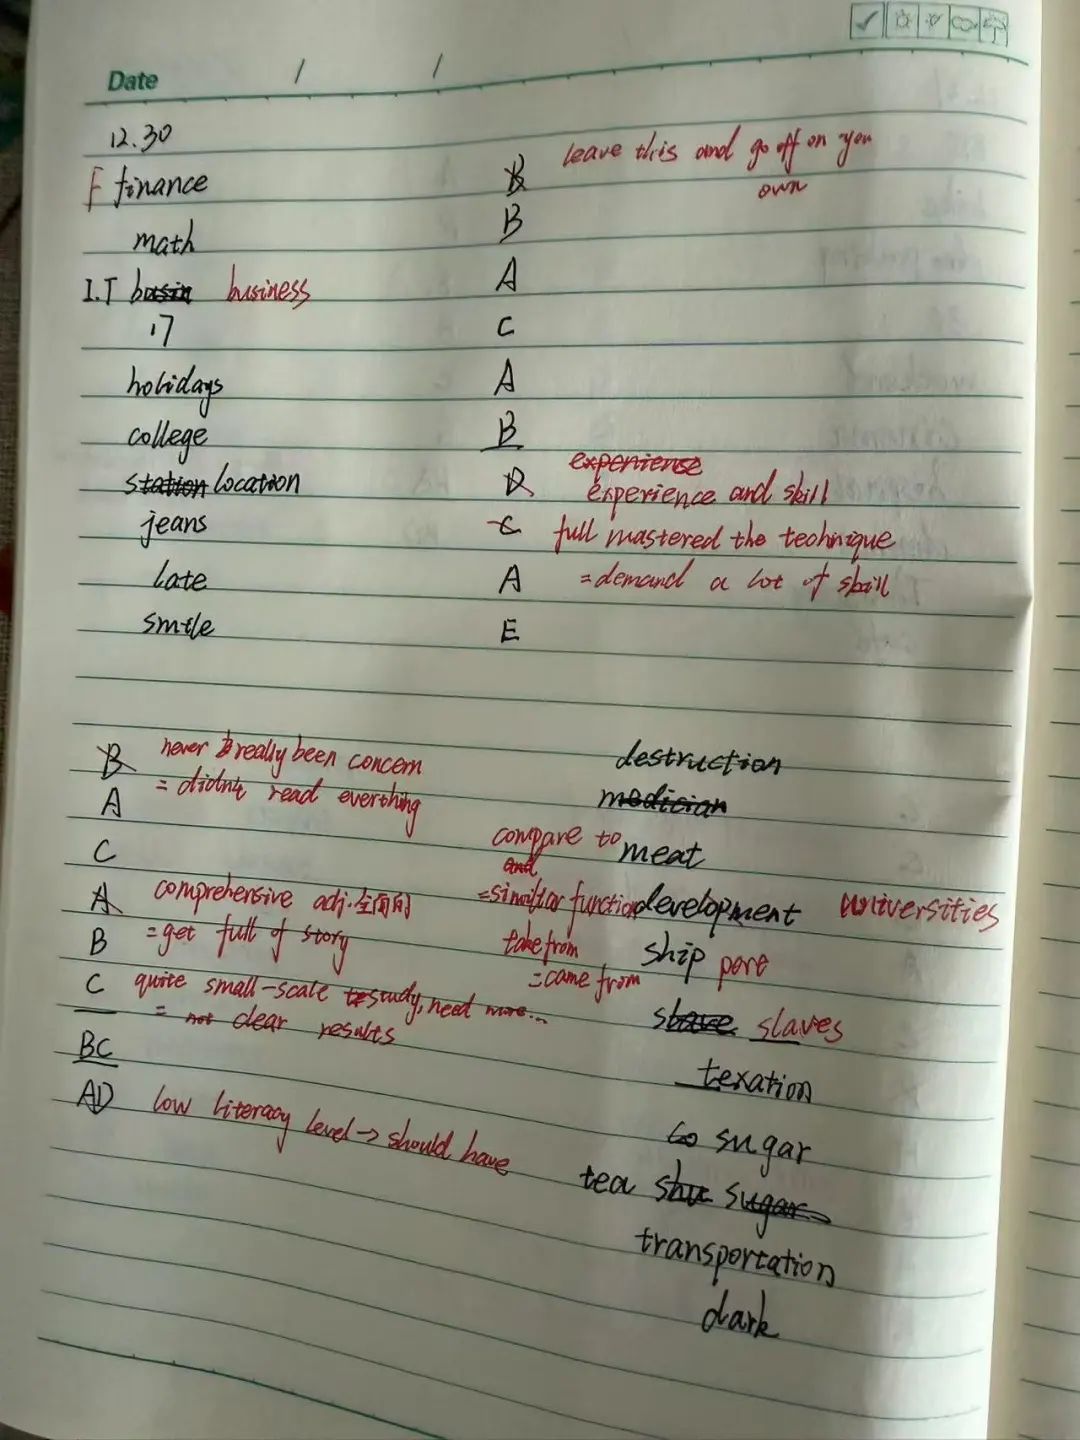 Date / /
12.30
F finance
math
I.T busin business
17
holidays
college
station location
jeans
late
smile
B leave this and go off on you
own
B
A
C
A
B
experiense
D experience and skill
C full mastered the technique
A = demand a lot of skill
E
B never really been concern
= didn't read everthing
A
C
A comprehensive adj. 全面的
B = get full of story
C quite small-scale study, need more...
= not clear results
BC
AD low literacy level → should have
destruction
medician
compare to meat
and
= similar function development universities
take from ship port
= came from
slave slaves
texation
sugar
tea sugar
transportation
dark